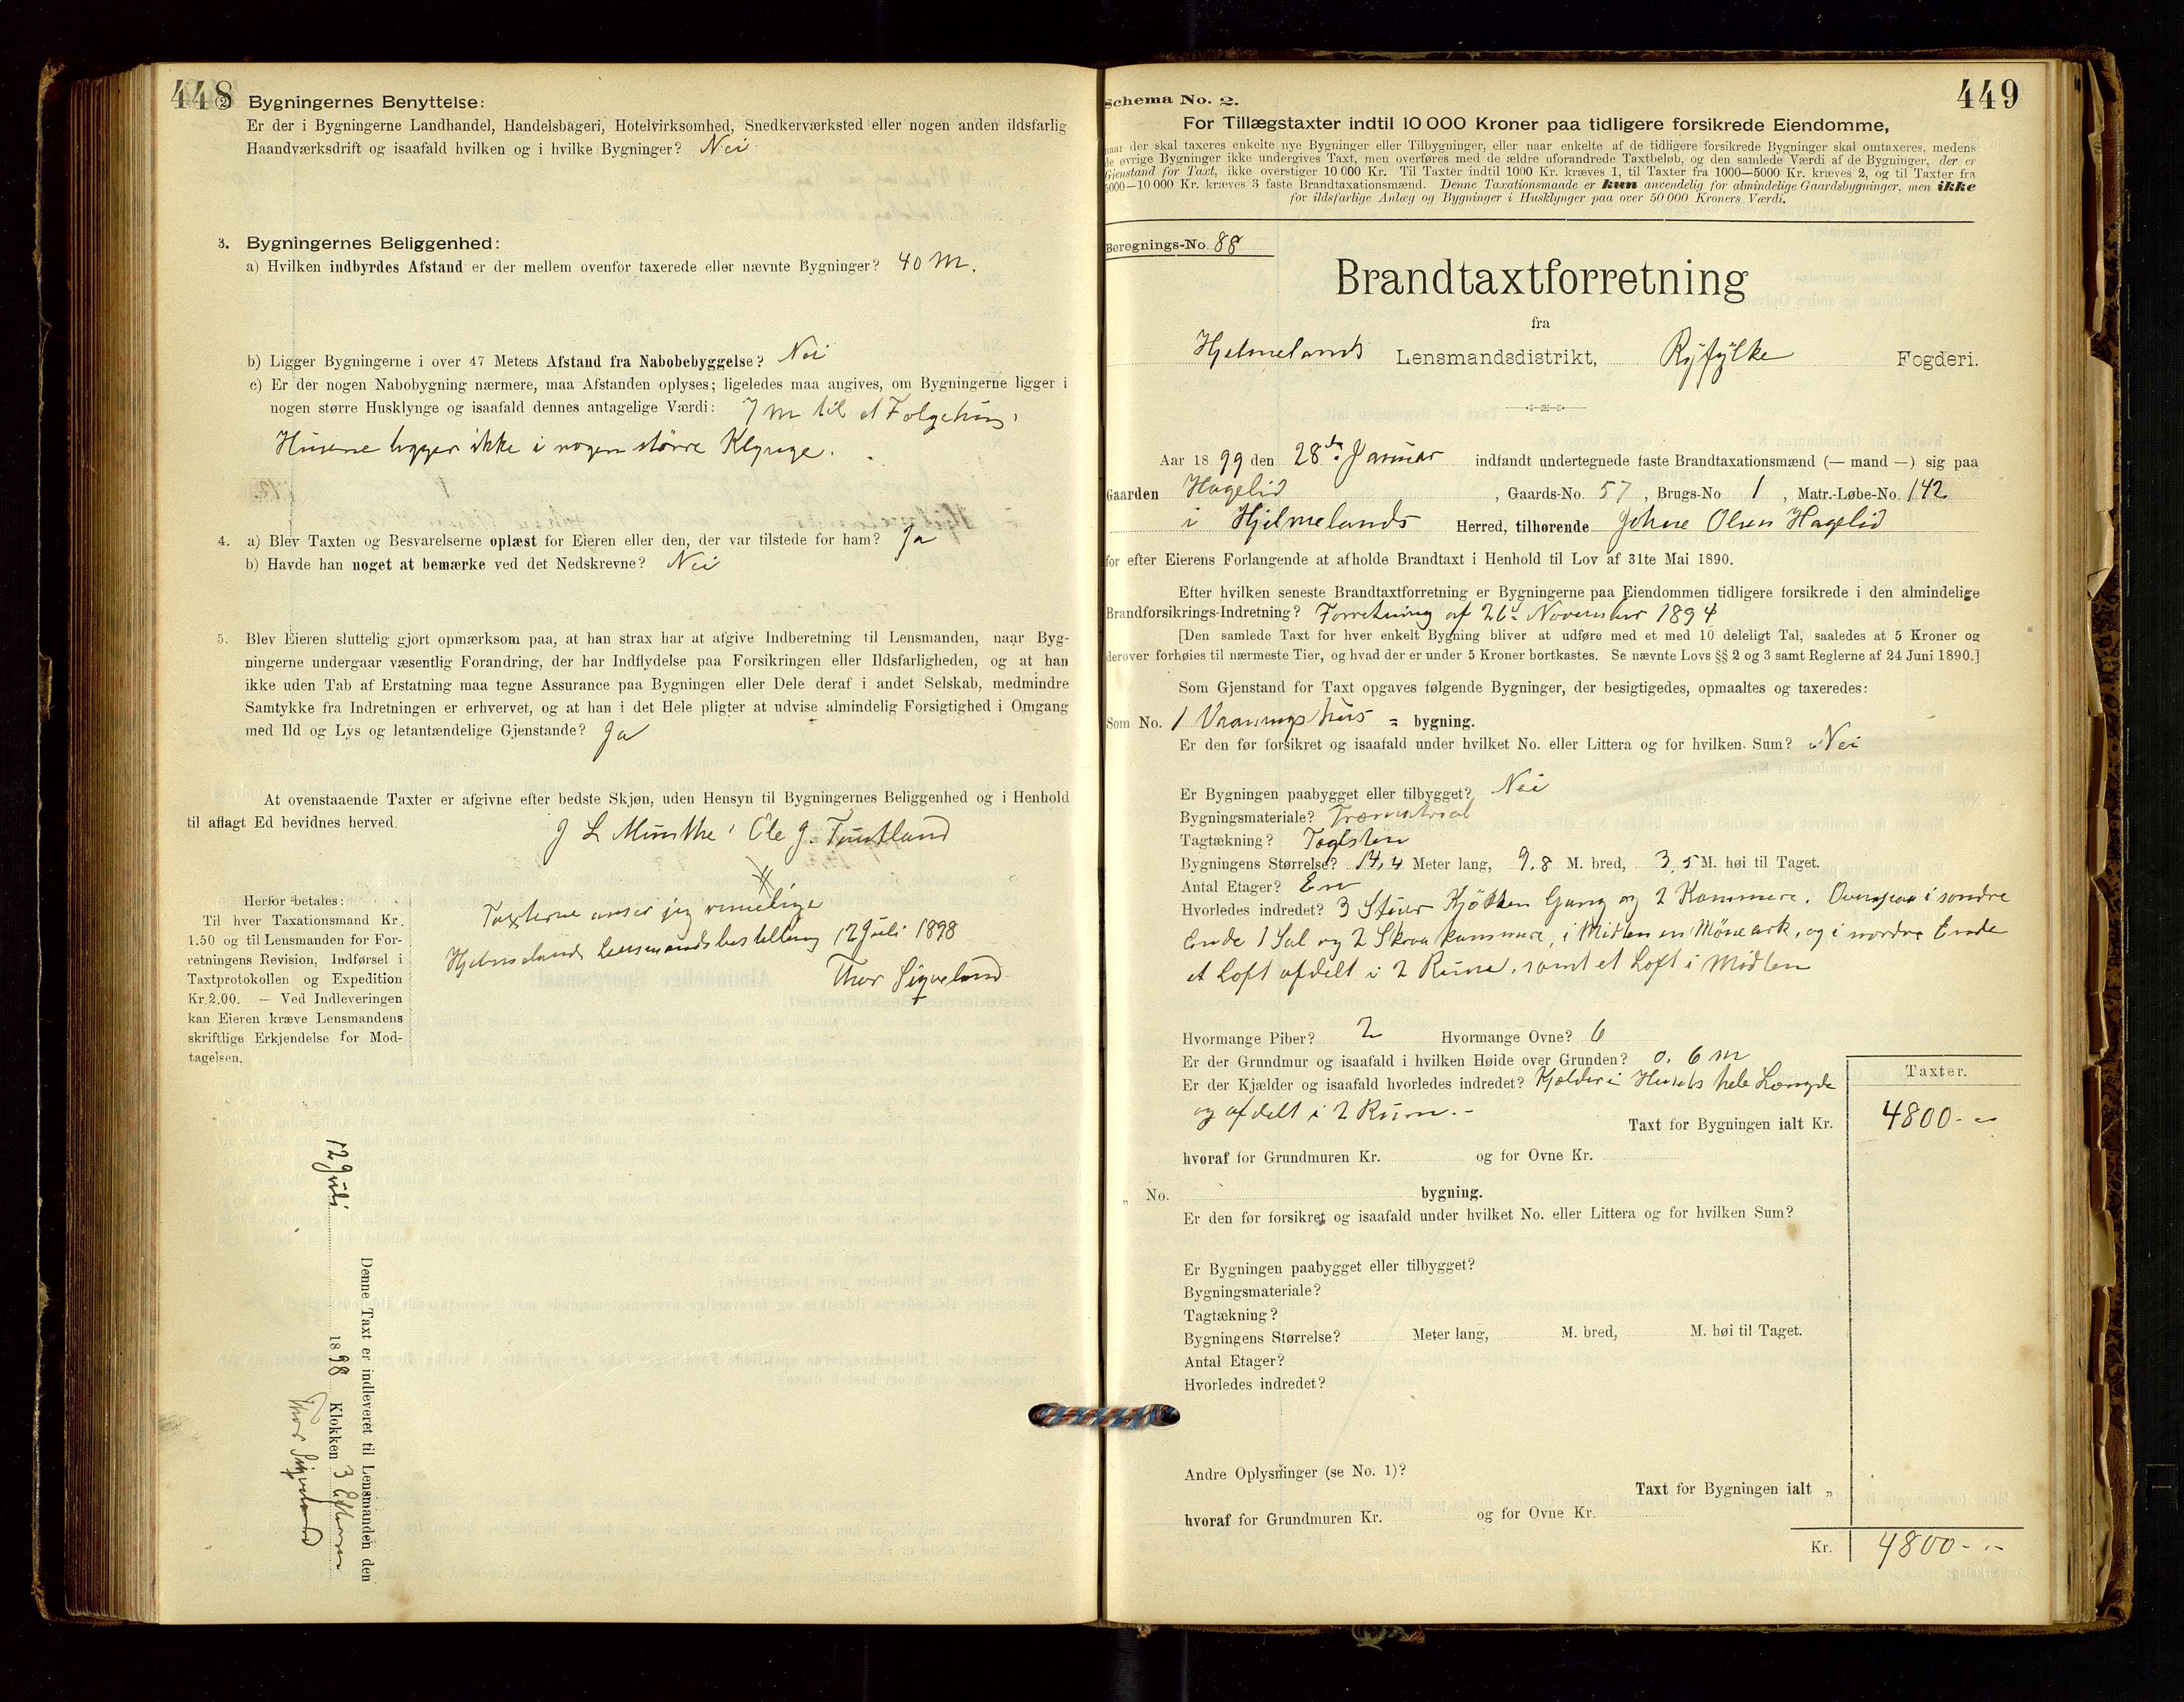 448
2. Bygningernes Benyttelse:
Er der i Bygningerne Landhandel, Handelsbageri, Hotelvirksomhed, Snedkerværksted eller nogen anden ildsfarlig
Haandværksdrift og isaafald hvilken og i hvilke Bygninger? Nei
3. Bygningernes Beliggenhed:
a) Hvilken indbyrdes Afstand er der mellem ovenfor taxerede eller nævnte Bygninger? 40 m.
b) Ligger Bygningerne i over 47 Meters Afstand fra Nabobebyggelse? Nei
c) Er der nogen Nabobygning nærmere, maa Afstanden oplyses; ligeledes maa angives, om Bygningerne ligger i
nogen større Husklynge og isaafald dennes antagelige Værdi: 7 m til et Folgehus,
Husene ligger ikke i nogen större Klynge.
4. a) Blev Taxten og Besvarelserne oplæst for Eieren eller den, der var tilstede for ham? Ja
b) Havde han noget at bemærke ved det Nedskrevne? Nei
5. Blev Eieren sluttelig gjort opmærksom paa, at han strax har at afgive Indberetning til Lensmanden, naar Byg-
ningerne undergaar væsentlig Forandring, der har Indflydelse paa Forsikringen eller Ildsfarligheden, og at han
ikke uden Tab af Erstatning maa tegne Assurance paa Bygningen eller Dele deraf i andet Selskab, medmindre
Samtykke fra Indretningen er erhvervet, og at han i det Hele pligter at udvise almindelig Forsigtighed i Omgang
med Ild og Lys og letantændelige Gjenstande? Ja
At ovenstaaende Taxter er afgivne efter bedste Skjøn, uden Hensyn til Bygningernes Beliggenhed og i Henhold
til aflagt Ed bevidnes herved.
J L Munthe Ole J. Tuntland
Herfor betales:
Til hver Taxationsmand Kr.
1.50 og til Lensmanden for For-
retningens Revision, Indførsel i
Taxtprotokollen og Expedition
Kr. 2.00. — Ved Indleveringen
kan Eieren kræve Lensmandens
skriftlige Erkjendelse for Mod-
tagelsen.
Taxterne anser jeg rimelige
Hjelmelands Lensmandsbestilling 12 Juli 1898
Thor Sigveland
Denne Taxt er indleveret til Lensmanden den
12 Juli 1898 Klokken 3 Efterm
Thor Sigveland
449
Schema No. 2.
For Tillægstaxter indtil 10 000 Kroner paa tidligere forsikrede Eiendomme,
naar der skal taxeres enkelte nye Bygninger eller Tilbygninger, eller naar enkelte af de tidligere forsikrede Bygninger skal omtaxeres, medens
de øvrige Bygninger ikke undergives Taxt, men overføres med de ældre uforandrede Taxtbeløb, og den samlede Værdi af de Bygninger, der er
Gjenstand for Taxt, ikke overstiger 10 000 Kr. Til Taxter indtil 1000 Kr. kræves 1, til Taxter fra 1000—5000 Kr. kræves 2, og til Taxter fra
5000—10 000 Kr. kræves 3 faste Brandtaxationsmænd. Denne Taxationsmaade er kun anvendelig for almindelige Gaardsbygninger, men ikke
for ildsfarlige Anlæg og Bygninger i Husklynger paa over 50 000 Kroners Værdi.
Beregnings-No. 88
Brandtaxtforretning
fra
Hjelmelands Lensmandsdistrikt, Ryfylke Fogderi.
Aar 1899 den 28de Januar indfandt undertegnede faste Brandtaxationsmænd (— mand —) sig paa
Gaarden Hagelid, Gaards-No. 57, Brugs-No 1, Matr.-Løbe-No. 142
i Hjelmelands Herred, tilhørende Johne Olsen Hagelid
for efter Eierens Forlangende at afholde Brandtaxt i Henhold til Lov af 31te Mai 1890.
Efter hvilken seneste Brandtaxtforretning er Bygningerne paa Eiendommen tidligere forsikrede i den almindelige
Brandforsikrings-Indretning? Forretning af 26 November 1894
[Den samlede Taxt for hver enkelt Bygning bliver at udføre med et med 10 deleligt Tal, saaledes at 5 Kroner og
derover forhøies til nærmeste Tier, og hvad der er under 5 Kroner bortkastes. Se nævnte Lovs §§ 2 og 3 samt Reglerne af 24 Juni 1890.]
Som Gjenstand for Taxt opgaves følgende Bygninger, der besigtigedes, opmaaltes og taxeredes:
Som No. 1 Vaaningshus = bygning.
Er den før forsikret og isaafald under hvilket No. eller Littera og for hvilken Sum? Nei
Er Bygningen paabygget eller tilbygget? Nei
Bygningsmateriale? Træmaterial
Tagtækning? Taglsten
Bygningens Størrelse? 14,4 Meter lang, 9,8 M. bred, 3,5 M. høi til Taget.
Antal Etager? En
Hvorledes indredet? 3 Stuer Kjökken Gang og 2 Kammere. Ovenpaa i søndre
Ende 1 Sal og 2 Skraakammere, i Midten en Möneark, og i nordre Ende
et Loft afdelt i 2 Rum, samt et Loft i Midten
Hvormange Piber? 2 Hvormange Ovne? 6
Er der Grundmur og isaafald i hvilken Høide over Grunden? 0,6 m
Er der Kjælder og isaafald hvorledes indredet? Kjelder i Husets hele Længde
og afdelt i 2 Rum.-
Taxter.
Taxt for Bygningen ialt Kr. 4800--
hvoraf for Grundmuren Kr. og for Ovne Kr.
„ No. bygning.
Er den før forsikret og isaafald under hvilket No. eller Littera og for hvilken Sum?
Er Bygningen paabygget eller tilbygget?
Bygningsmateriale?
Tagtækning?
Bygningens Størrelse? Meter lang, M. bred, M. høi til Taget.
Antal Etager?
Hvorledes indredet?
Andre Oplysninger (se No. 1)?
Taxt for Bygningen ialt „
hvoraf for Grundmuren Kr. og for Ovne Kr.
Kr. 4800--